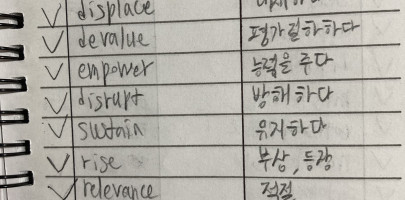 displace
devalue 평가절하하다
empower 능력을 주다
disrupt 방해하다
sustain 유지하다
rise 부상, 등장
relevance 적절